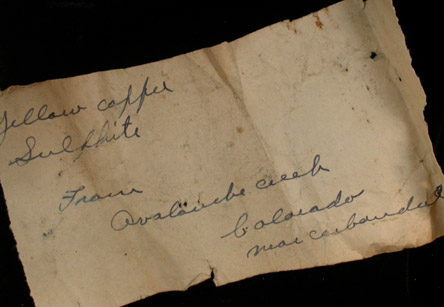 Yellow copper
Sulphite
From
Avalanche creek
Colorado
near carbondale